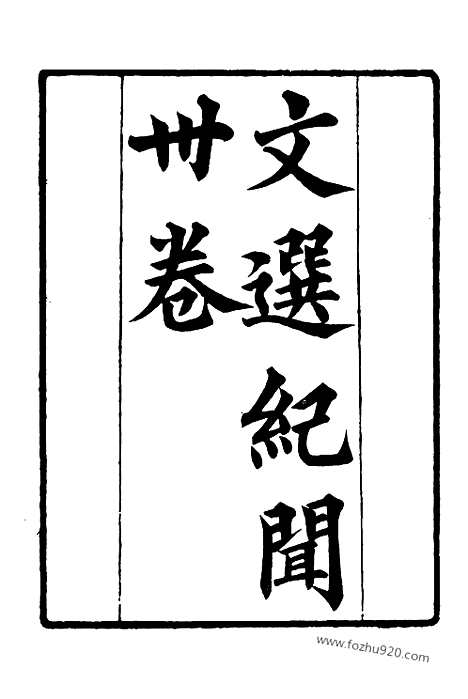 文選紀聞
卅卷
www.fozhu920.com